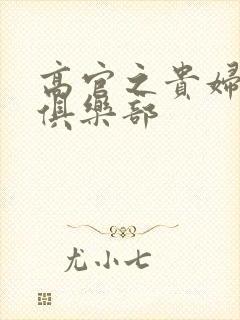 高官之貴婦
俱樂部
尤小七